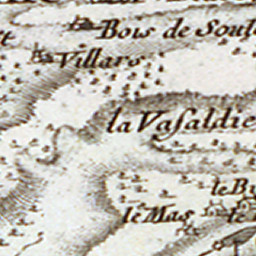 Bois de Soul
Villars
la Vaſaldie
le B
le Mas
le